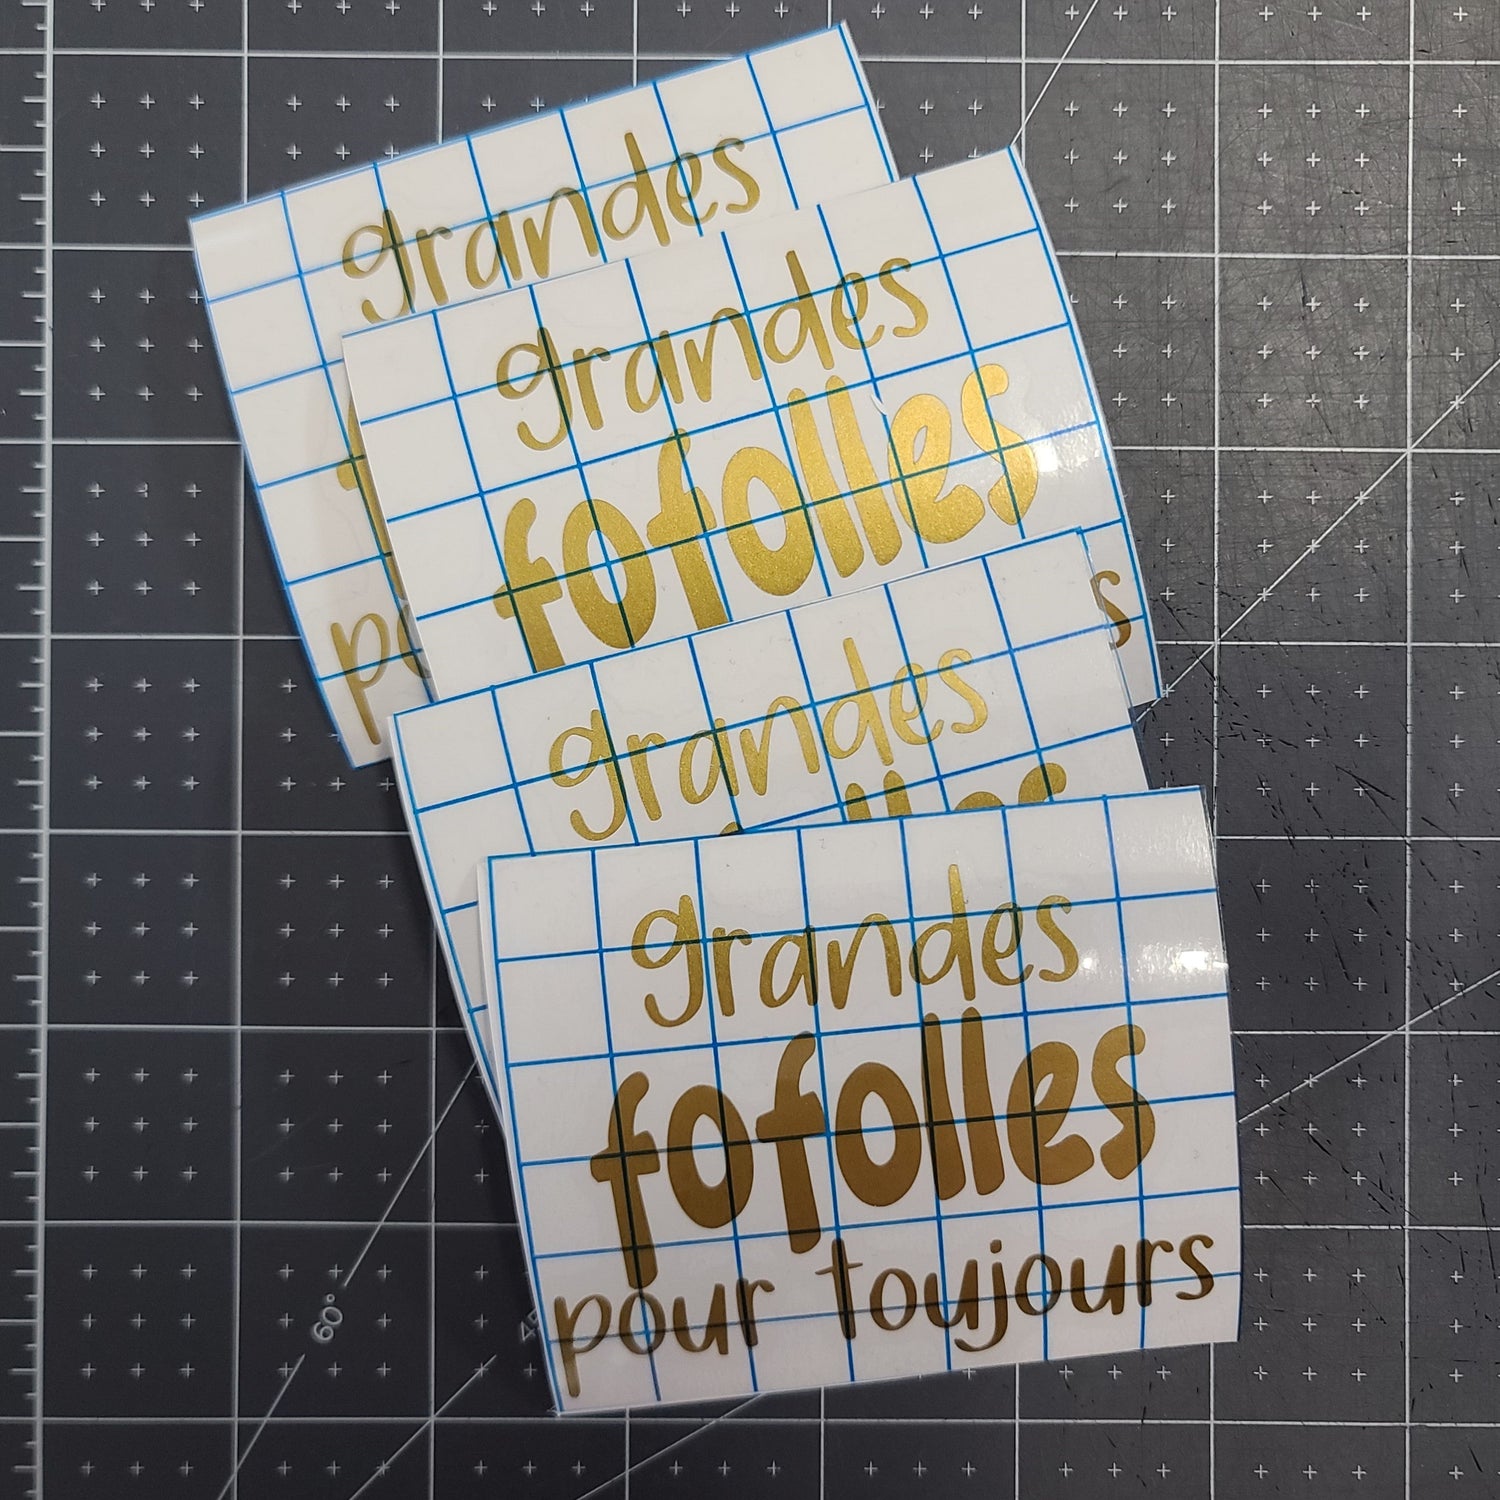 grandes
po
grandes
fofolles
s
grandes
grandes
fofolles
pour toujours
60°